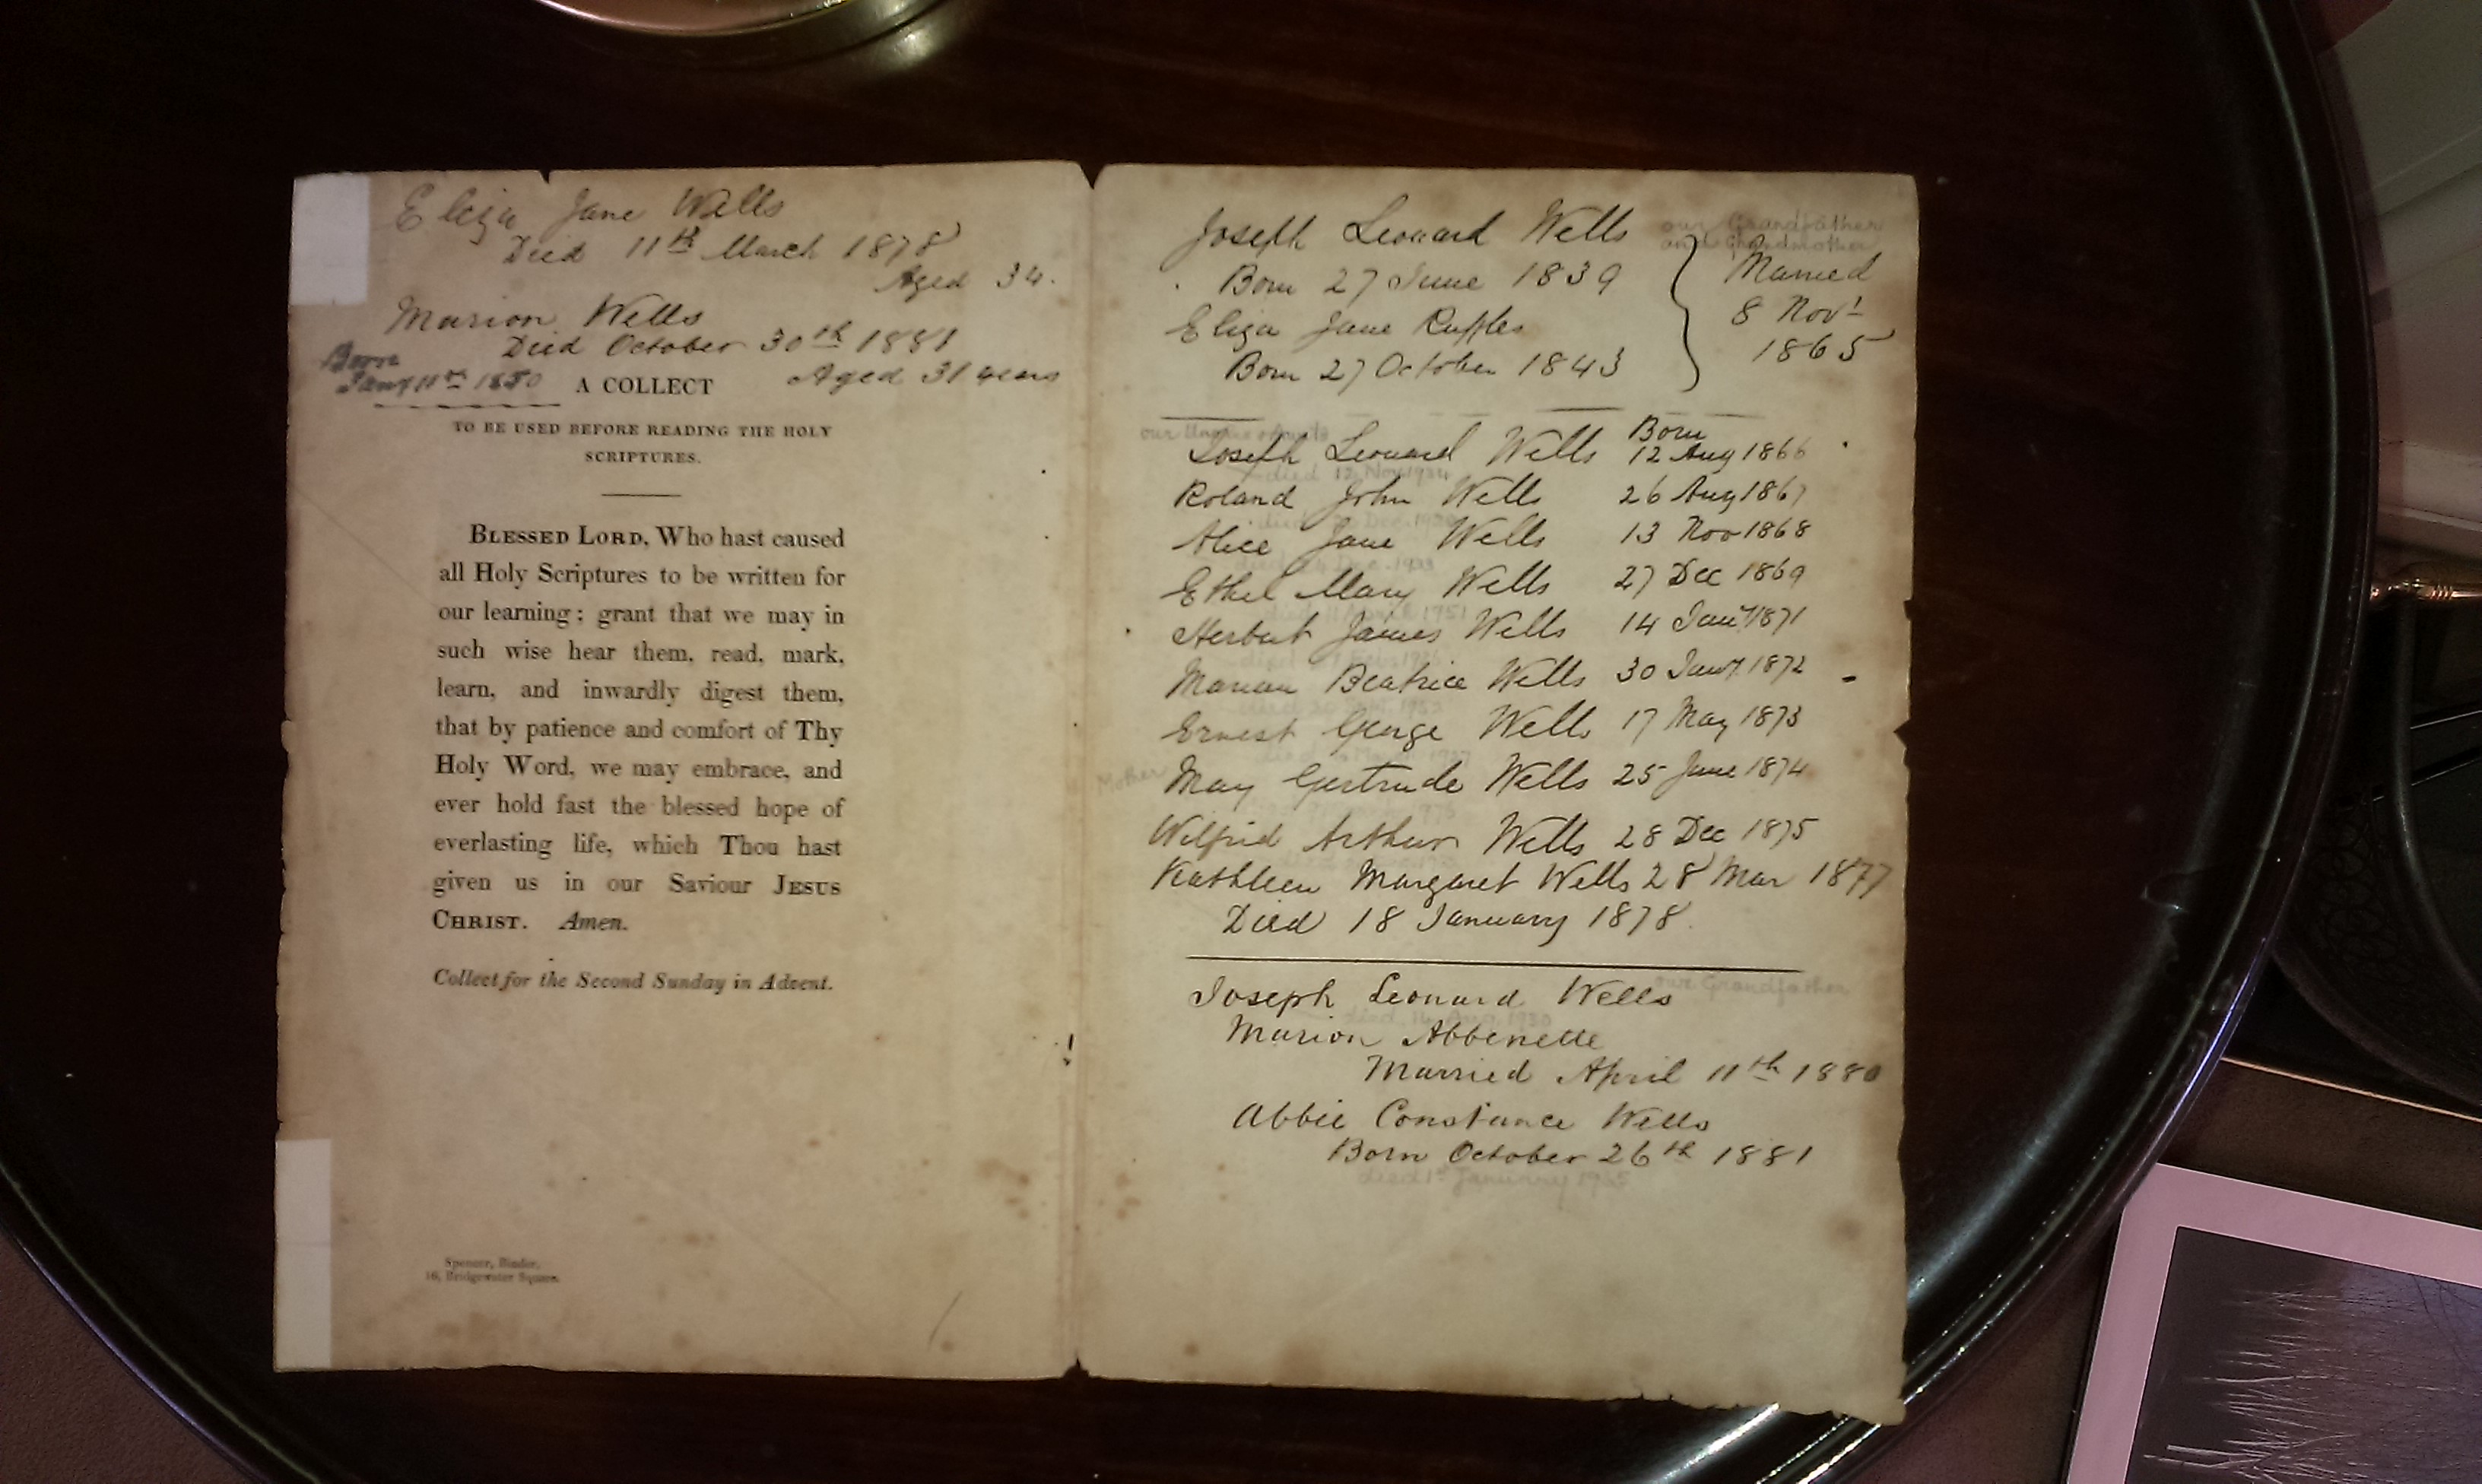 Eliza Jane Wells
Died 11th March 1878
Aged 34.
Marion Wells
Died October 30th 1881
Aged 31 years
Born
Jany 11th 1850
A COLLECT
TO BE USED BEFORE READING THE HOLY
SCRIPTURES.
BLESSED LORD, Who hast caused
all Holy Scriptures to be written for
our learning; grant that we may in
such wise hear them, read, mark,
learn, and inwardly digest them,
that by patience and comfort of Thy
Holy Word, we may embrace, and
ever hold fast the blessed hope of
everlasting life, which Thou hast
given us in our Saviour JESUS
CHRIST. Amen.
Collect for the Second Sunday in Advent.
Spencer, Binder,
16, Bridgewater Square.
our Grandfather
and Grandmother
Joseph Leonard Wells
Born 27 June 1839
Eliza Jane Ruffles
Born 27 October 1843
Married
8 Novr
1865
our Uncles & Aunts
Born
Joseph Leonard Wells 12 Aug 1866
died 12 Nov 1934
Roland John Wells 26 Aug 1867
died Dec. 1920
Alice Jane Wells 13 Nov 1868
died 1933
Ethel Mary Wells 27 Dec 1869
died 1951
Herbert James Wells 14 Jany 1871
died
Marian Beatrice Wells 30 Jany 1872
died
Ernest George Wells 17 May 1873
Mother May Gertrude Wells 25 June 1874
Wilfrid Arthur Wells 28 Dec 1875
Kathleen Margaret Wells 28 Mar 1877
Died 18 January 1878
Joseph Leonard Wells our Grandfather
died 14 Aug. 1930
Marion Abbenelle
Married April 11th 1880
Abbie Constance Wells
Born October 26th 1881
died 1st January 1965